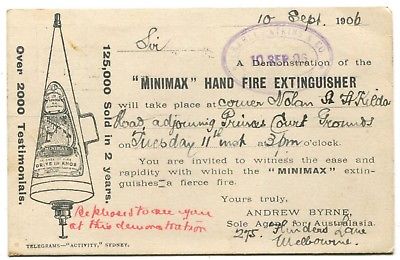 10 Sept. 1906
Sir
10 SEP. 06
A Demonstration of the
"MINIMAX" HAND FIRE EXTINGUISHER
will take place at corner Nolan St St Kilda
Road adjoining Princes Court Grounds
on Tuesday 11th inst at 3pm o'clock.
You are invited to witness the ease and
rapidity with which the "MINIMAX" extin-
guishes a fierce fire.
Yours truly,
ANDREW BYRNE,
Sole Agent for Australasia.
275 Flinders Lane
Melbourne.
Over 2000 Testimonials.
125,000 Sold in 2 years.
MINIMAX
IN CASE OF FIRE
DRIVE IN KNOB
Be pleased to see you
at this demonstration
TELEGRAMS—"ACTIVITY," SYDNEY.